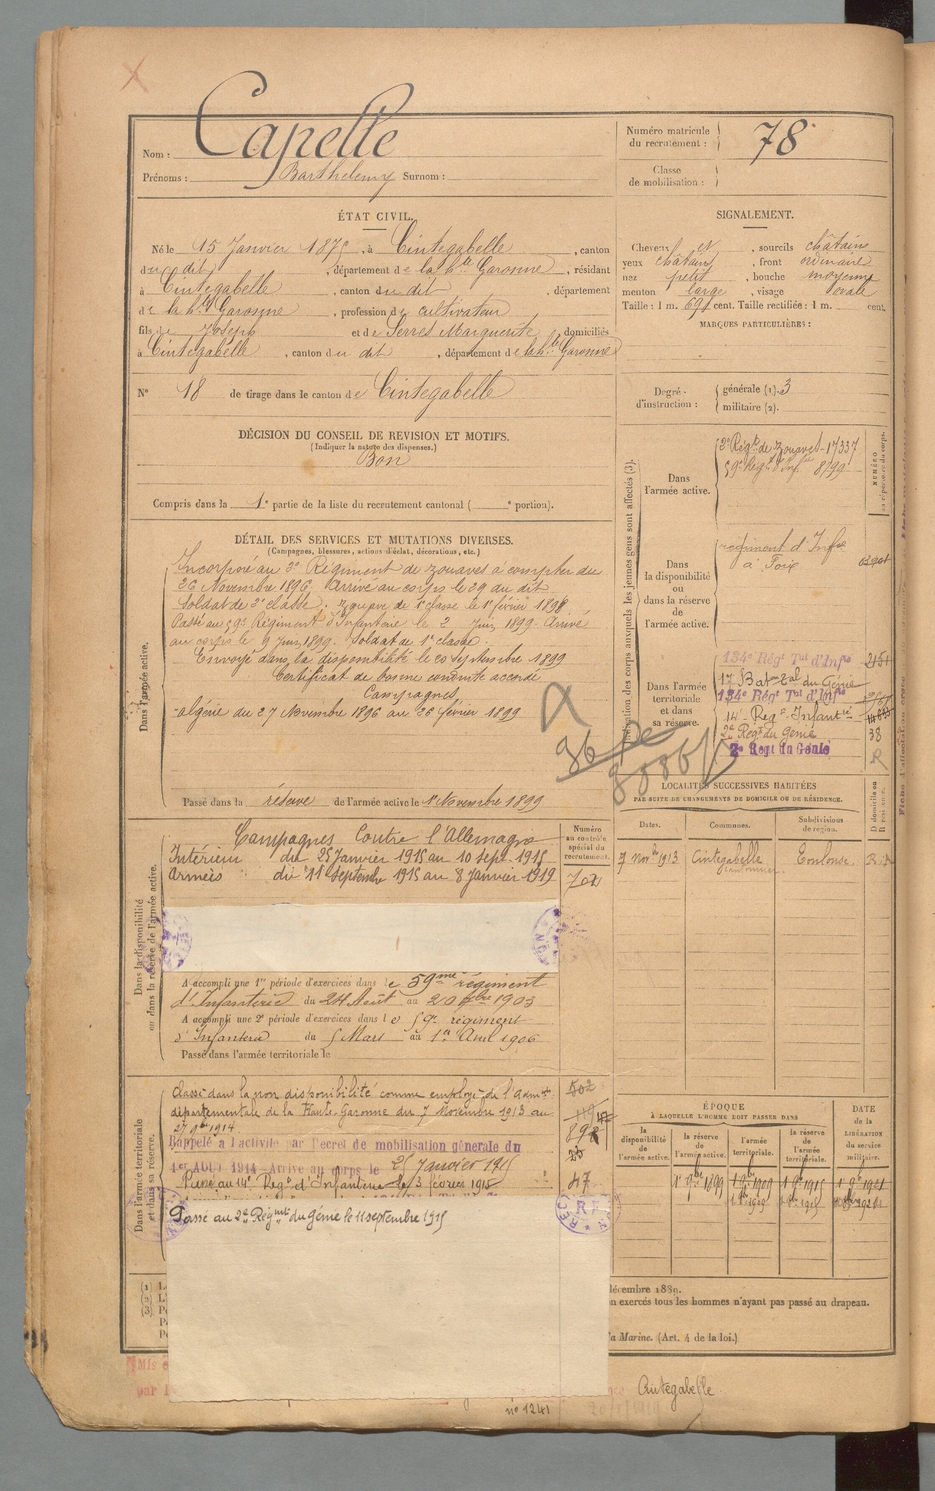 Nom : Capelle
Prénoms : Barthélemy Surnom :
Numéro matricule
du recrutement :
78
Classe
de mobilisation :
ÉTAT CIVIL.
Né le 15 Janvier 187 , à Cintegabelle , canton
du dit , département de la hte Garonne , résidant
à Cintegabelle , canton du dit , département
de la hte Garonne , profession de cultivateur
fils de Joseph et de Serres Marguerite , domiciliés
à Cintegabelle , canton du dit , département de la hte Garonne
No 18 de tirage dans le canton de Cintegabelle
SIGNALEMENT.
Cheveux et , sourcils châtains
yeux châtains , front ordinaire
nez petit , bouche moyenne
menton large , visage ovale
Taille : 1 m. 691 cent. Taille rectifiée : 1 m. cent.
MARQUES PARTICULIÈRES :
Degré
d'instruction :
générale (1). 3
militaire (2).
DÉCISION DU CONSEIL DE REVISION ET MOTIFS.
(Indiquer la nature des dispenses.)
Bon
Compris dans la 1e partie de la liste du recrutement cantonal ( e portion).
DÉTAIL DES SERVICES ET MUTATIONS DIVERSES.
(Campagnes, blessures, actions d'éclat, décorations, etc.)
Dans l'armée active.
Incorporé au 2e Régiment de zouaves à compter du
26 Novembre 1896. Arrivé au corps le 29 du dit.
Soldat de 2e classe. Zouave de 1e classe le 1er février 1898.
Passé au 59e Régiment d'Infanterie le 2 Juin 1899. Arrivé
au corps le 9 Juin 1899. Soldat de 1e classe.
Envoyé dans la disponibilité le 20 Septembre 1899
Certificat de bonne conduite accordé
Campagnes
Algérie du 27 Novembre 1896 au 26 février 1899
Passé dans la réserve de l'armée active le 1er Novembre 1899
Indication des corps auxquels les jeunes gens sont affectés (3).
Dans
l'armée active.
2e Régt de zouaves - 17337
59e Régt d'Infie 8799
Dans
la disponibilité
ou dans la
réserve de
l'armée active.
régiment d'Infie
à Foix
Dans l'armée
territoriale
et dans
sa réserve.
134e Régt Tal d'Infie
17 Baton Tal du Génie
134e Régt Tal d'Infie
14e Régt Infanterie
2e Régt du Génie 38
2e Régt du Génie R
LOCALITÉS SUCCESSIVES HABITÉES
PAR SUITE DE CHANGEMENTS DE DOMICILE OU DE RÉSIDENCE.
Dates. Communes. Subdivisions
de région.
7 novbre 1913 Cintegabelle Toulouse
cantonnier
Dans la disponibilité
ou dans la réserve de l'armée active.
Numéro
au contrôle
spécial du
recrutement.
Campagnes Contre l'Allemagne
Intérieur du 25 Janvier 1915 au 10 Sept. 1915
Armées du 11 Septembre 1915 au 8 Janvier 1919
A accompli une 1re période d'exercices dans le 59me régiment
d'Infanterie du 24 Août au 20 7bre 1903
A accompli une 2e période d'exercices dans le 59e régiment
d'Infanterie du 5 Mars au 1er Avril 1906
Passé dans l'armée territoriale le
Dans l'armée territoriale
et dans sa réserve.
Classé dans la non disponibilité comme employé de l'Admon
départementale de la Haute Garonne du 7 Novembre 1913 au
27 9bre 1914
Rappelé à l'activité par Decret de mobilisation générale du
1er AOUT 1914 - Arrivé au corps le 25 Janvier 1915
Passé au 14e Régt d'Infanterie le 3 février 1915
47
Passé au 2e Régiment du Génie le 11 septembre 1915
ÉPOQUE
À LAQUELLE L'HOMME DOIT PASSER DANS
la
disponibilité
de
l'armée active.
la réserve
de
l'armée active.
l'armée
territoriale.
la réserve
de
l'armée
territoriale.
DATE
de la
LIBÉRATION
du service
militaire.
1er 9bre 1899
décembre 1889.
en exercés tous les hommes n'ayant pas passé au drapeau.
la Marine. (Art. 4 de la loi.)
Mis
par
Cintegabelle
no 1241